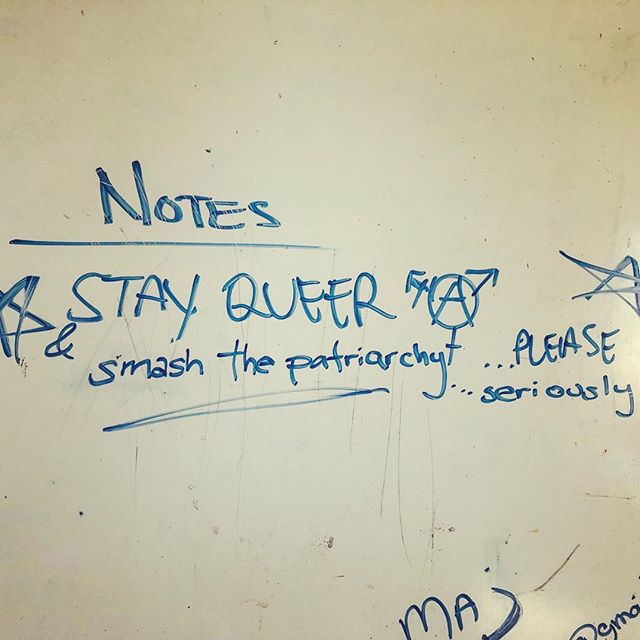 NOTES
STAY QUEER
& smash the patriarchy ...PLEASE
...seriously
MA
@gmai